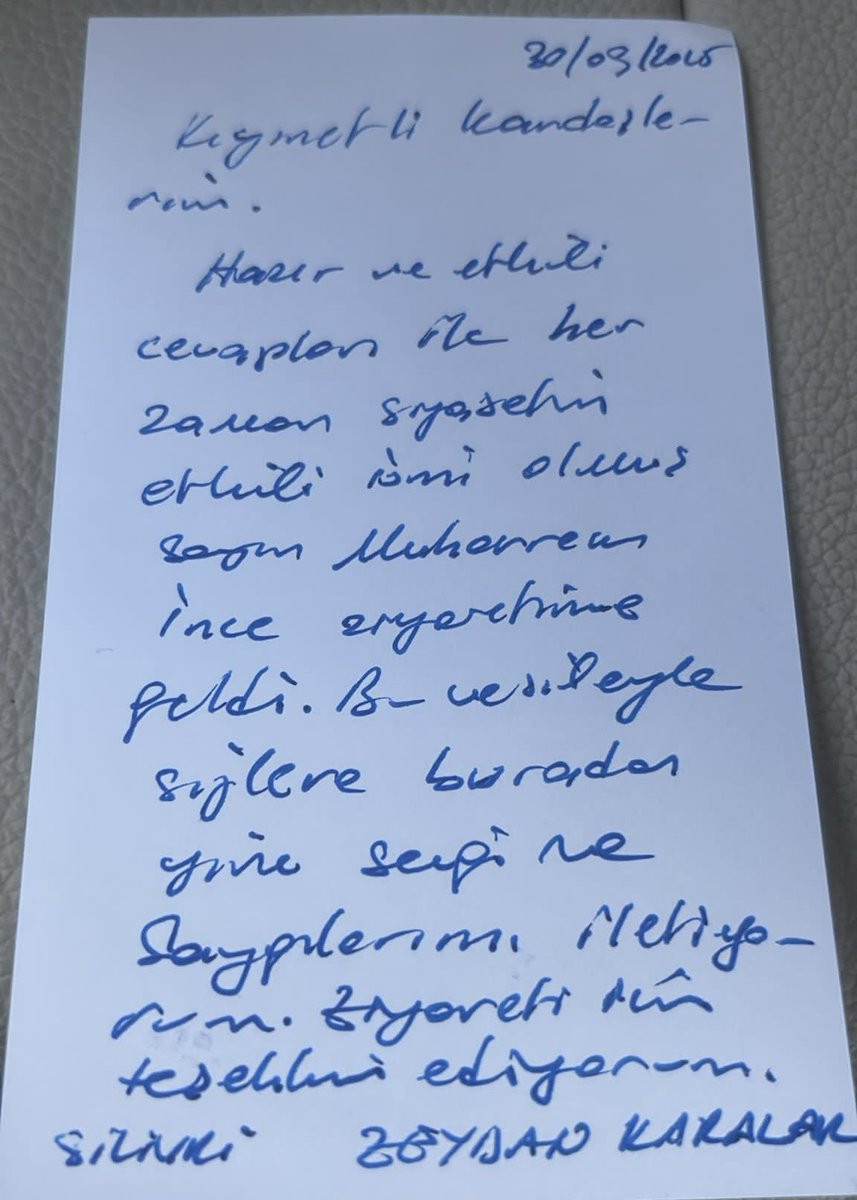 30/09/2025
Kıymetli kardeşle-
rim.
Hazır ve etkili
cevapları ile her
zaman siyasetin
etkili ismi olmuş
sayın Muharrem
İnce ziyaretime
geldi. Bu vesileyle
sizlere buradan
yine sevgi ve
Saygılarımı iletiyo-
rum. Ziyareti için
teşekkür ediyorum.
SİLİVRİ ZEYDAN KARALAR